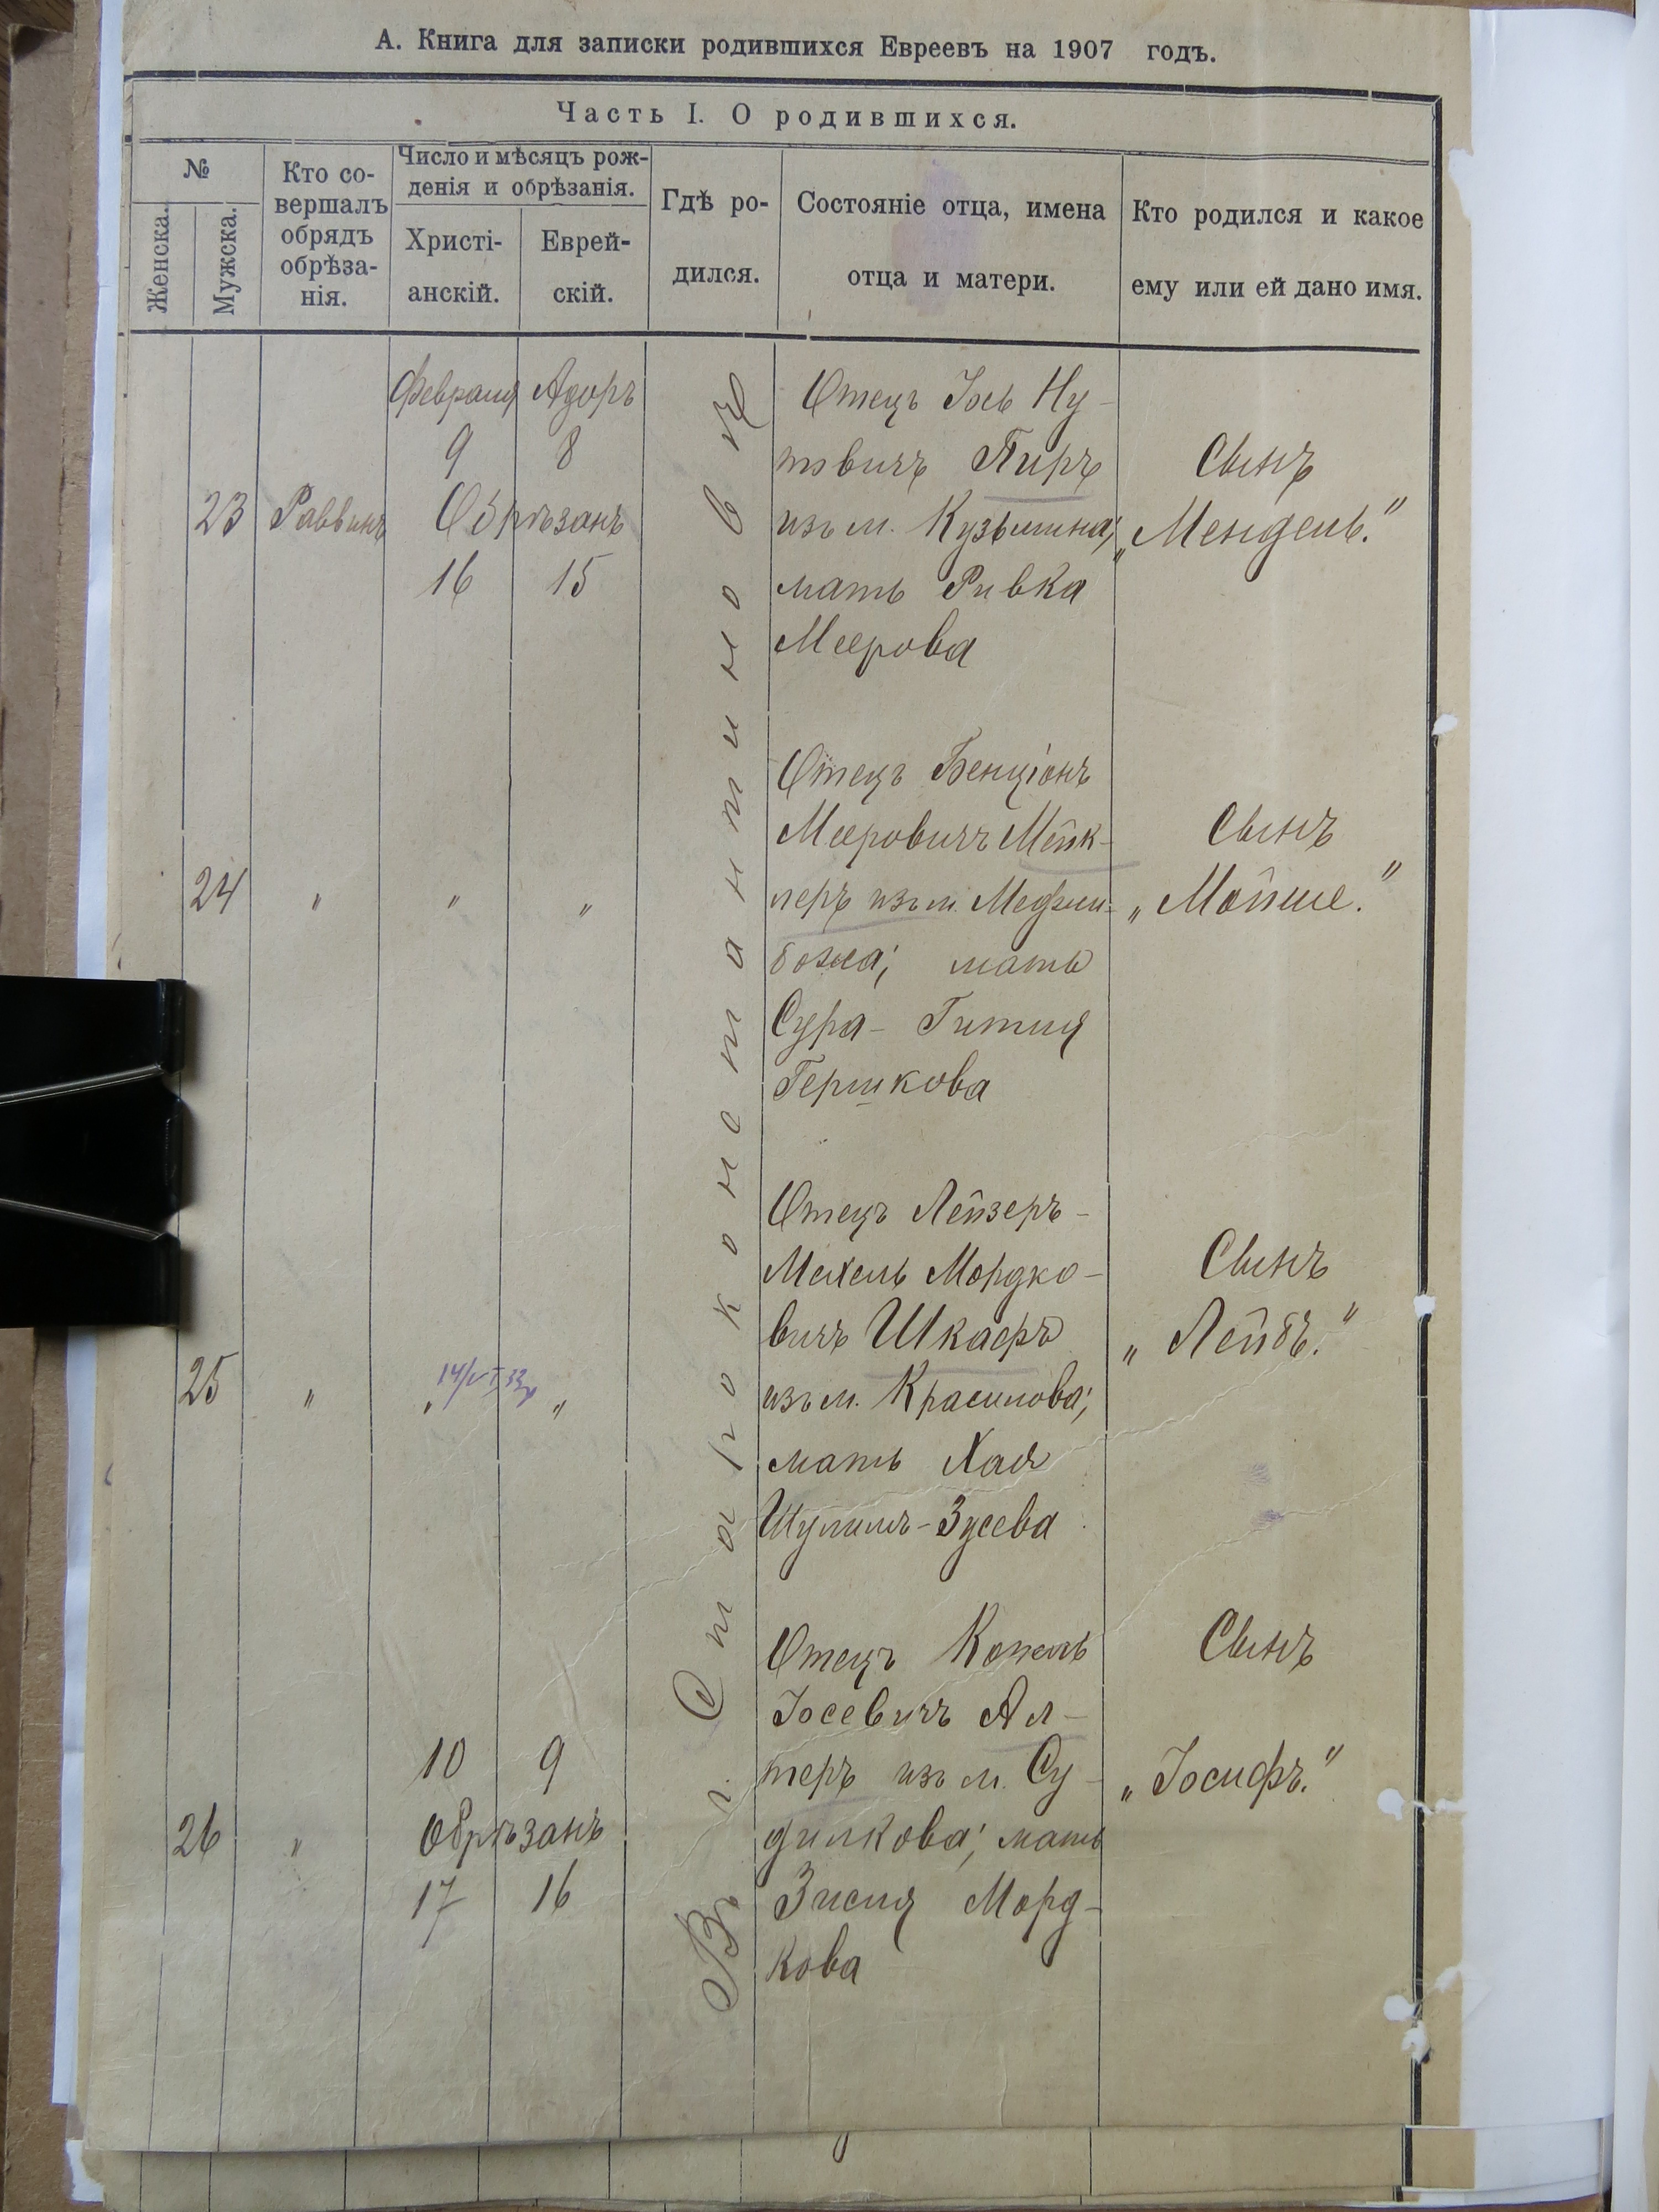 А. Книга для записки родившихся Евреевъ на 1907 годъ.
Часть I. О родившихся.
№
Женска.
Мужска.
Кто со-
вершалъ
обрядъ
обрѣза-
нія.
Число и мѣсяцъ рож-
денія и обрѣзанія.
Христі-
анскій.
Еврей-
скій.
Гдѣ ро-
дился.
Состояніе отца, имена
отца и матери.
Кто родился и какое
ему или ей дано имя.
Въ г. Староконстантиновѣ
23
Раввинъ
Февраля Адоръ
9 8
Обрѣзанъ
16 15
Отецъ Іось Ну-
товичъ Пиръ
изъ м. Кузьмина;
мать Ривка
Меерова
Сынъ
„Мендель."
24 " " "
Отецъ Бенціонъ
Мееровичъ Мейк-
леръ изъ м. Меджи-
божа; мать
Сура-Гитля
Гершкова
Сынъ
„Мойше."
25 " " "
14/VI 33г
Отецъ Лейзеръ-
Мехель Мордко-
вичъ Шкаеръ
изъ м. Красилова;
мать Хая
Шулимъ-Зусева
Сынъ
„Лейбъ."
26 "
10 9
Обрѣзанъ
17 16
Отецъ Копель
Іосевичъ Ал-
теръ изъ м. Су-
дилкова; мать
Зисля Морд-
кова
Сынъ
„Іосифъ."